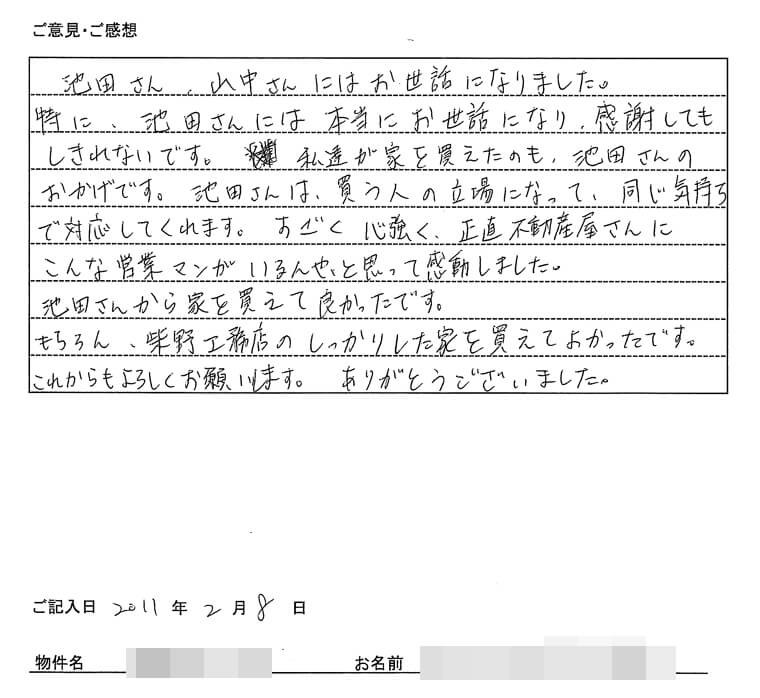 ご意見・ご感想
池田さん、山中さんにはお世話になりました。
特に、池田さんには本当にお世話になり、感謝しても
しきれないです。 私達が家を買えたのも、池田さんの
おかげです。池田さんは、買う人の立場になって、同じ気持ち
で対応してくれます。すごく心強く、正直不動産屋さんに
こんな営業マンがいるんや、と思って感動しました。
池田さんから家を買えて良かったです。
もちろん、柴野工務店のしっかりした家を買えてよかったです。
これからもよろしくお願いします。ありがとうございました。
ご記入日 2011 年 2 月 8 日
物件名 お名前